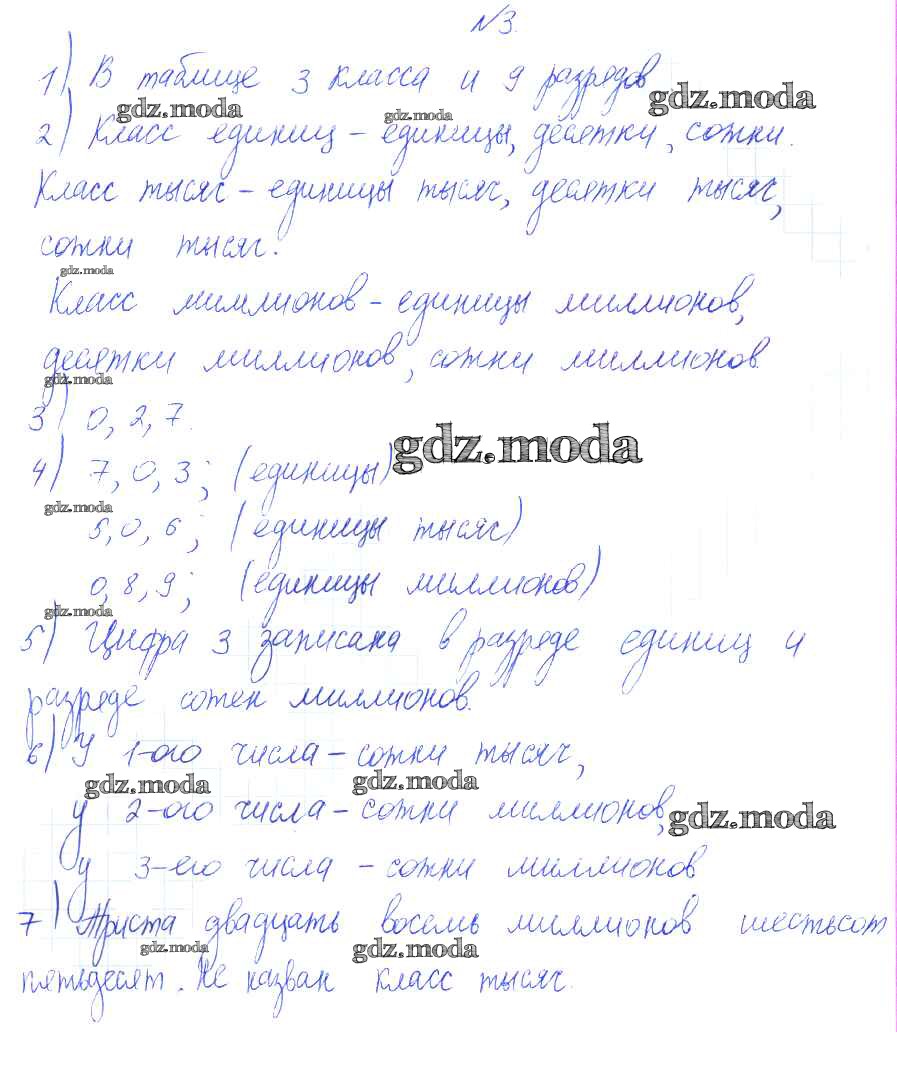 №3.
1) В таблице 3 класса и 9 разрядов
gdz.moda gdz.moda gdz.moda
2) Класс единиц - единицы, десятки, сотни.
Класс тысяч - единицы тысяч, десятки тысяч,
сотни тысяч.
gdz.moda
Класс миллионов - единицы миллионов,
десятки миллионов, сотни миллионов.
gdz.moda
3) 0, 2, 7.
gdz.moda
4) 7, 0, 3; (единицы)
gdz.moda
5, 0, 6; (единицы тысяч)
0, 8, 9; (единицы миллионов)
gdz.moda
5) Цифра 3 записана в разряде единиц и
разряде сотен миллионов.
6) У 1-ого числа - сотни тысяч,
gdz.moda gdz.moda
у 2-ого числа - сотни миллионов,
gdz.moda
у 3-его числа - сотни миллионов
7) Триста двадцать восемь миллионов шестьсот
gdz.moda gdz.moda
пятьдесят. Не назван класс тысяч.